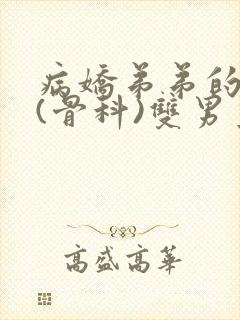 病嬌弟弟的
(骨科)雙男
高盛高華